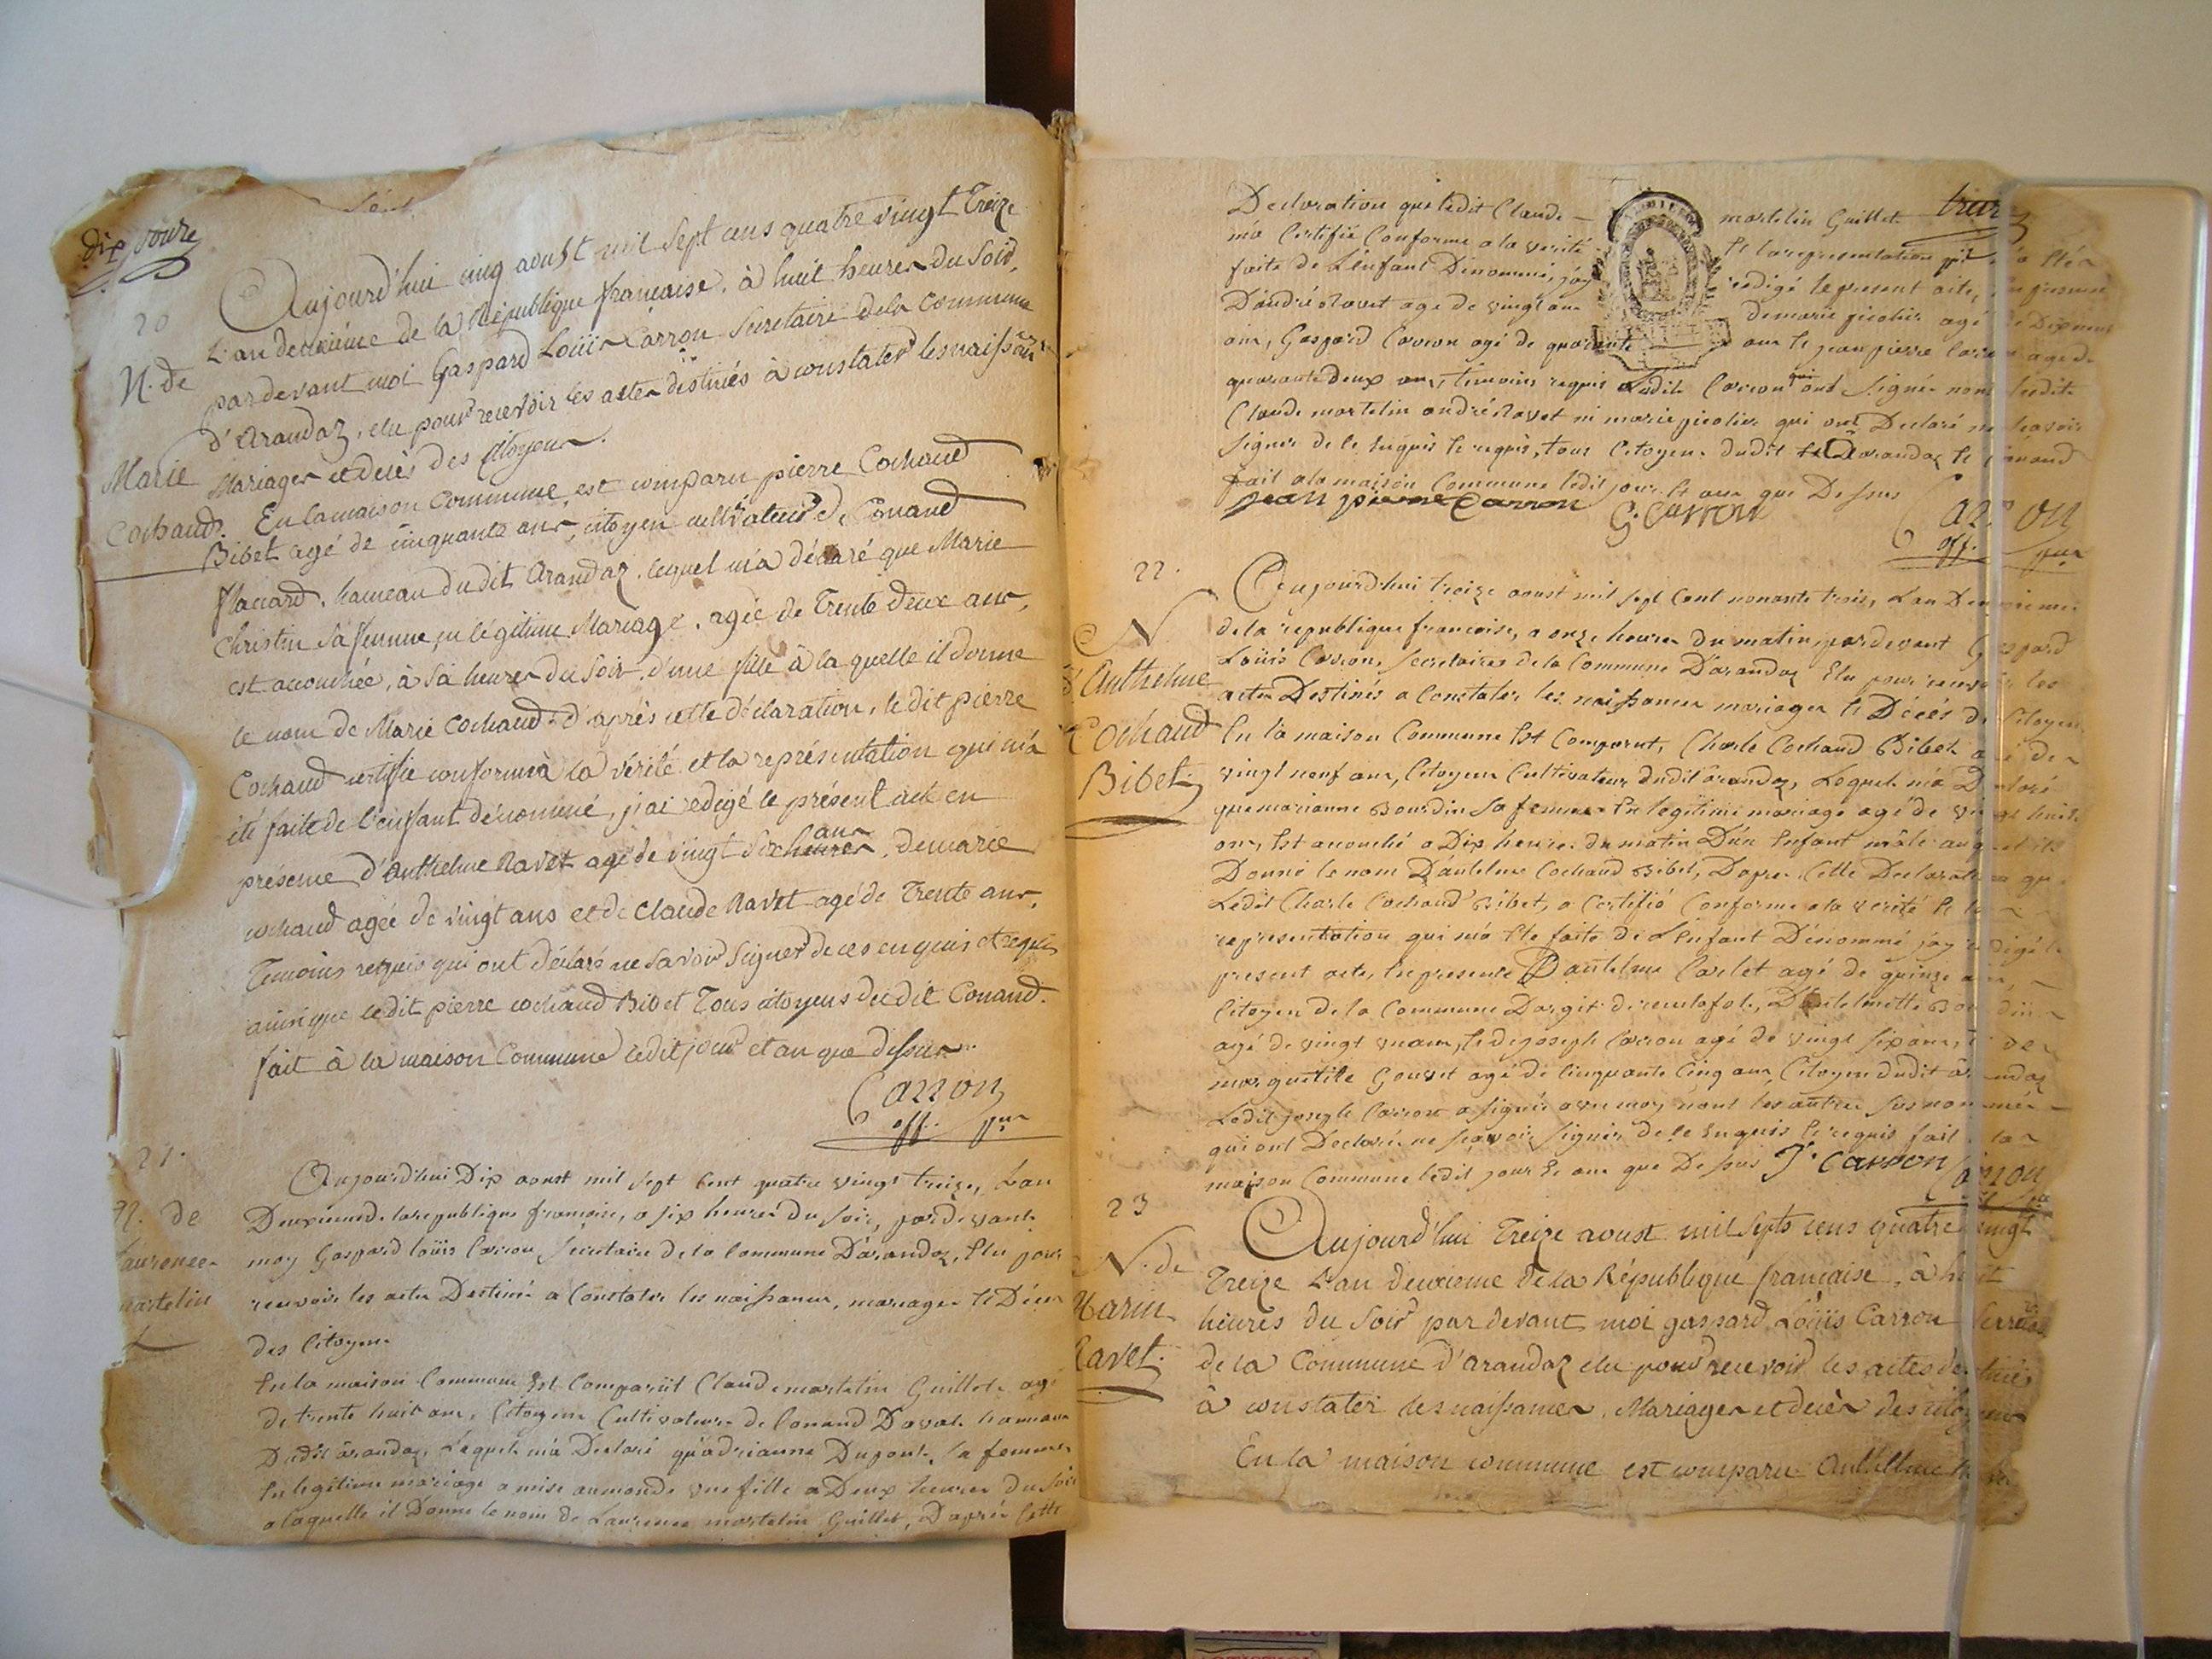 dix
20
N. de
Marie
Cochaud.
Aujourd'hui cinq aoust mil sept cens quatre vingt Treize
L'an deuxiéme de la République francaise, à huit heures du Soir,
par devant moi Gaspard Loüis Carron Secretaire dela commune
d'Arandaz, elu pour recevoir les actes destinés à constater les naissances
Mariages et decès des Citoyens.
En la maison commune, est comparu pierre Cochaud
Bibet agé de cinquante ans, citoyen cultivateur de Conand
hameau dudit Arandaz, lequel m'a déclaré que Marie
Christin sa femme, en légitime Mariage, agée de Trente deux ans,
est accouchée, à heures du Soir, d'une fille à la quelle il donne
le nom de Marie Cochaud. d'après cette déclaration, le dit pierre
Cochaud certifie conforme à la vérité et la représentation qui m'a
été faite de l'enfant dénommé, j'ai redigé le présent acte en
présence d'Anthelme Ravet agé de vingt heures ans, de marie
cochaud agée de vingt ans et de Claude Ravet agé de Trente ans,
Temoins requis qui ont déclaré ne savoir Signer de ces enquis et requis
ainsi que ledit pierre cochaud Bibet Tous citoyens dudit Conand.
fait à la maison Commune ledit jour et an que dessus.
Carron
off. pur
21.
N. de
Laurence
martelin
Aujourd'hui Dix aoust mil sept cent quatre vingt treize, Lan
Deuxieme de la republique francoise, a six heures du soir, pardevant
moy Gaspard loüis Carron secretaire de la Commune D'arandaz, Elu pour
recevoir les actes Destiné a Constater les naissances, mariages et Déces
des Citoyens
En la maison Commune Est Comparüt Claude martelin Guillet agé
de trente huit ans, Citoyen Cultivateur de Conand Daval hameau
Dudit arandaz, Lequel m'a Declaré qu'adrianne Dupont sa femme
En legitime mariage a mise au monde une fille a Deux heures Du soir
a laquelle il Donne le nom de Laurence martelin Guillet, D'aprés Cette
Declaration que ledit Claude martelin Guillet treize
ma Certifié Conforme a la verité Et la representation
faite de L'enfant Dénommé, j'ay redigé le present acte, En presence
D'andré Ravet age de vingt ans de marie agé
ans, Gaspard Carron agé de quarante ans Et jean pierre Carron age de
quarante deux ans, temoins requis Ledit Carron qui ont Signé non ledit
Claude martelin andré Ravet ni marie qui ont Declaré ne scavoir
signer de ce Enquis Et requis, tous Citoyens dudit arandaz Et Conand
fait a la maison Commune ledit jour Et an que Dessus
jean pierre Carron G. Carron Carron
off. pur
22.
N
d'Anthelme
Cochaud
Bibet
Cejourd'hui treize aoust mil sept Cent nonante trois, Lan Deuxieme
de la republique francoise, a onze heures du matin, pardevant Gaspard
Loüis Carron, secretaire de la Commune D'arandaz Elu pour recevoir les
actes Destinés a Constater les naissances mariages Et Décés des Citoyens
En la maison Commune Est Comparut, Charle Cochaud Bibet agé de
vingt neuf ans, Citoyen Cultivateur dudit arandaz, Lequel m'a Declaré
que marianne Bourdin sa femme En legitime mariage agé de vingt huit
ans, Est accouché a Dix heures du matin D'un Enfant mâle auquel il
Donne le nom D'antelme Cochaud Bibet, Dapres Cette Declaration que
Ledit Charle Cochaud Bibet, a Certifié Conforme a la verité Et la
representation qui m'a Ete faite de L'enfant Dénommé j'ay redigé le
present acte, En presence D'antelme Carlet agé de quinze ans,
Citoyen de la Commune D'argit D'antelmette Bourdin
agé de vingt un ans, Et de joseph Carron agé de vingt six ans, Et de
marguerite Gouvet agé de Cinquante Cinq ans, Citoyen dudit arandaz
Ledit joseph Carron a signée avec moy non les autres susnommés
qui ont Declaré ne scavoir signer de ce Enquis Et requis fait a la
maison Commune ledit jour Et an que Dessus J. Carron Carron
23
N. de
Marin
Ravet.
Aujourd'hui Treize aoust mil septs cens quatre vingt
Treize L'an deuxieme de la République francaise, à huit
heures du Soir par devant moi gaspard Loüis Carron secretaire
de la Commune d'arandaz elu pour recevoir les actes destinés
à constater les naissances, Mariages et decès des citoyens
En la maison commune est comparu Anthelme